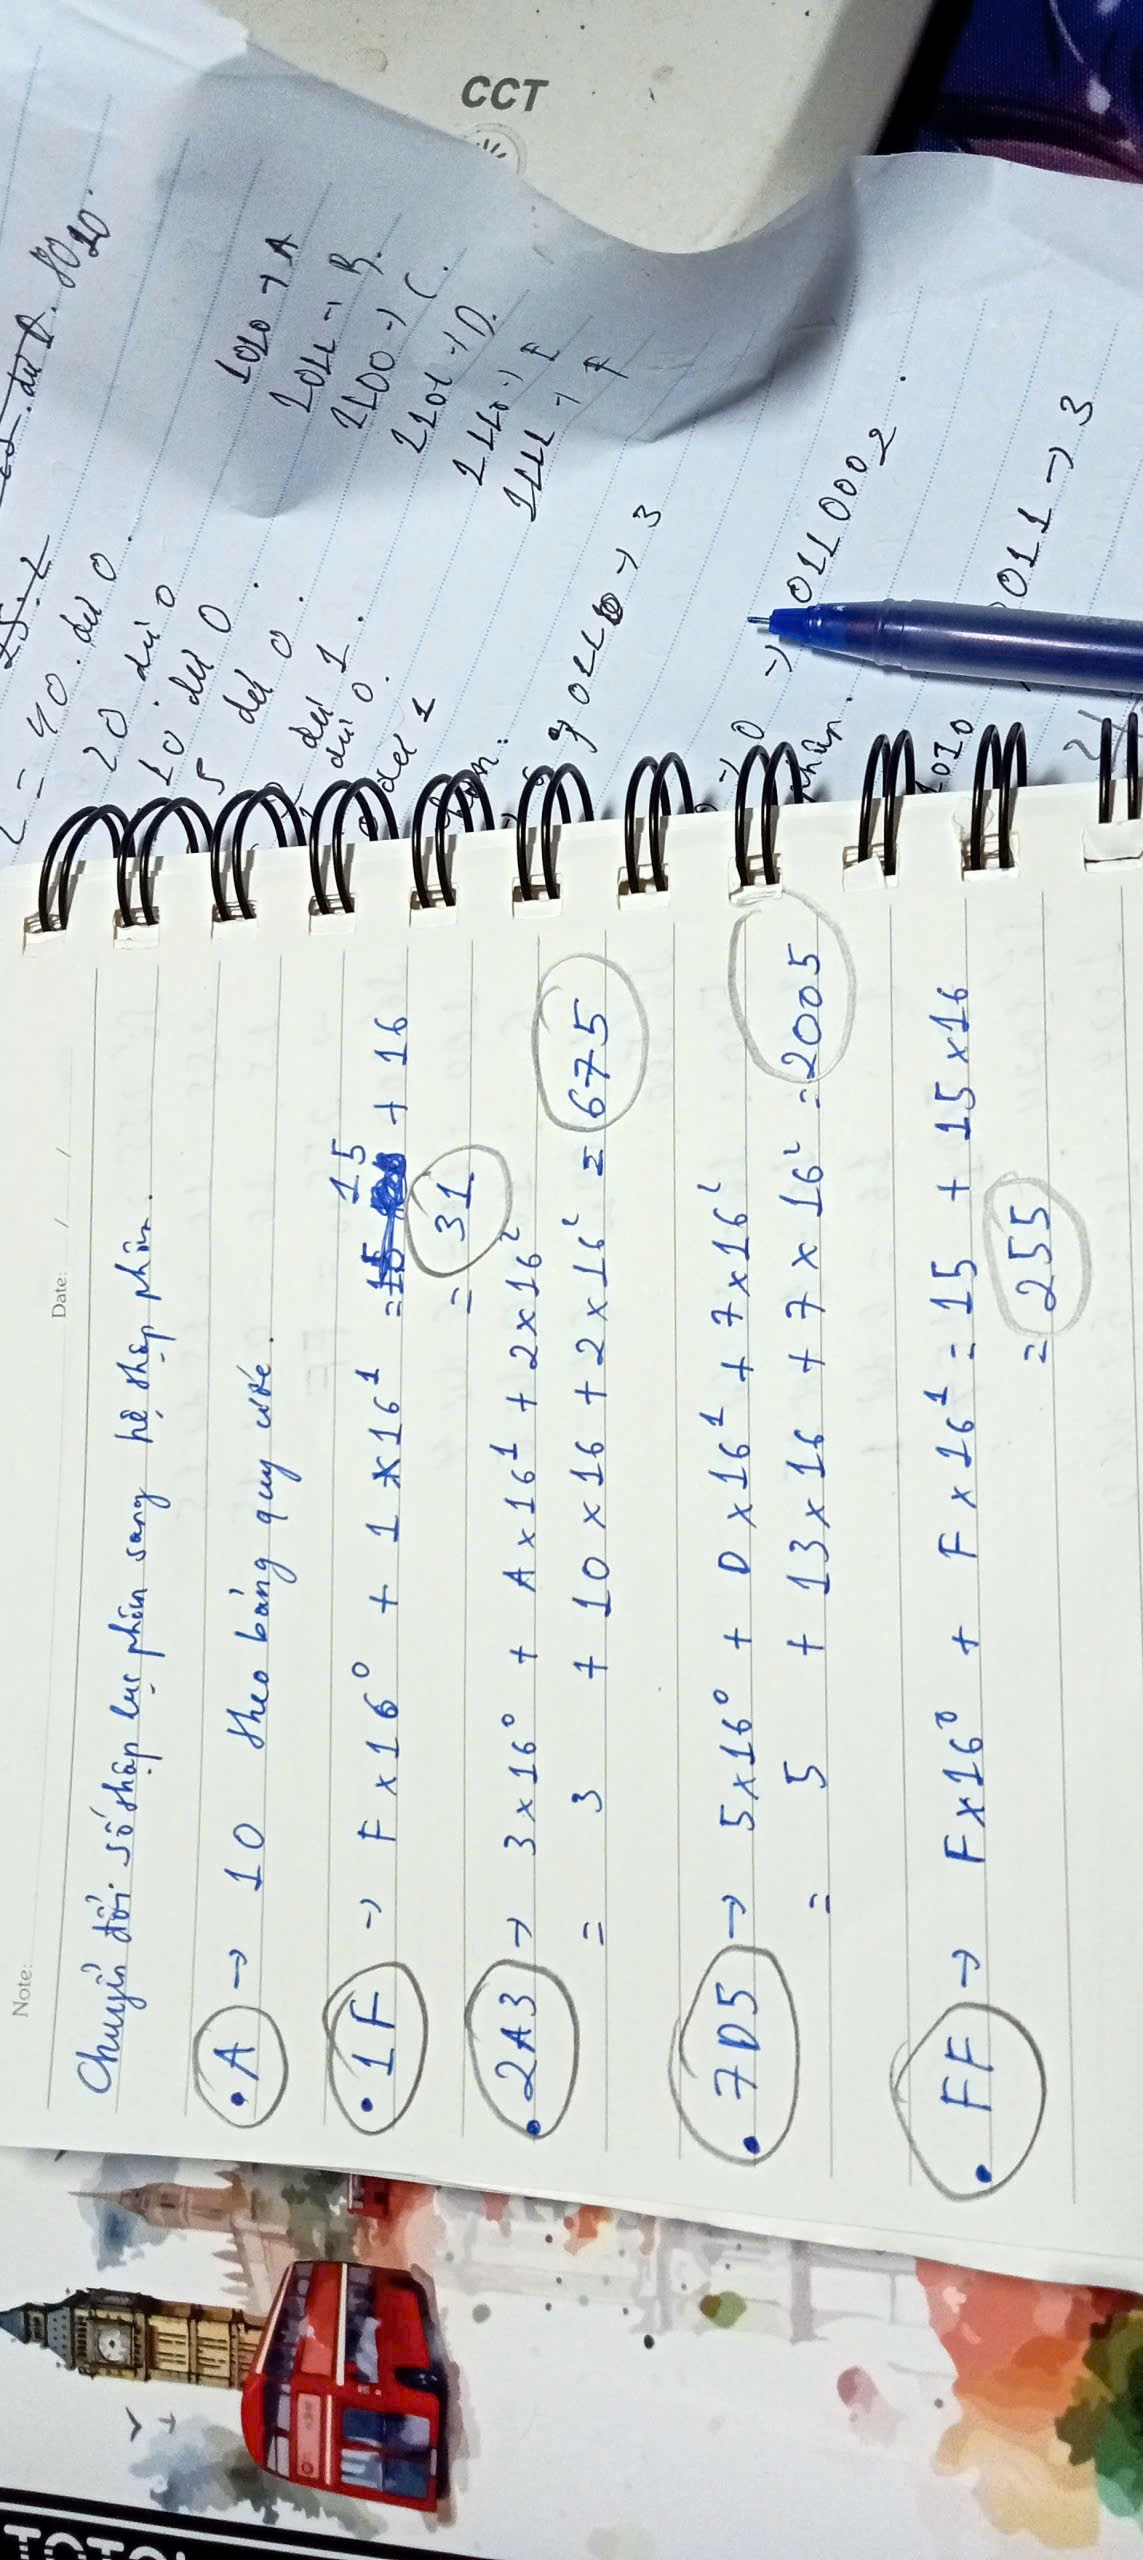 Note:
Date: / /
Chuyển đổi số thập lục phân sang hệ thập phân.
• A → 10 theo bảng quy ước.
• 1F → F x 16⁰ + 1 x 16¹ = 15 + 16
= 31
• 2A3 → 3 x 16⁰ + A x 16¹ + 2 x 16²
= 3 + 10 x 16 + 2 x 16² = 675
• 7D5 → 5 x 16⁰ + D x 16¹ + 7 x 16²
= 5 + 13 x 16 + 7 x 16² = 2005
• FF → F x 16⁰ + F x 16¹ = 15 + 15 x 16
= 255
CCT
= 40 dư 0.
20 dư 0
10 dư 0.
5 dư 0.
dư 1.
dư 0.
dư 1
1010 → A
1011 → B.
1100 → C.
1101 → D.
1110 → E
1111 → F
→ 3
→ 0110002.
phân.
1010
011 → 3